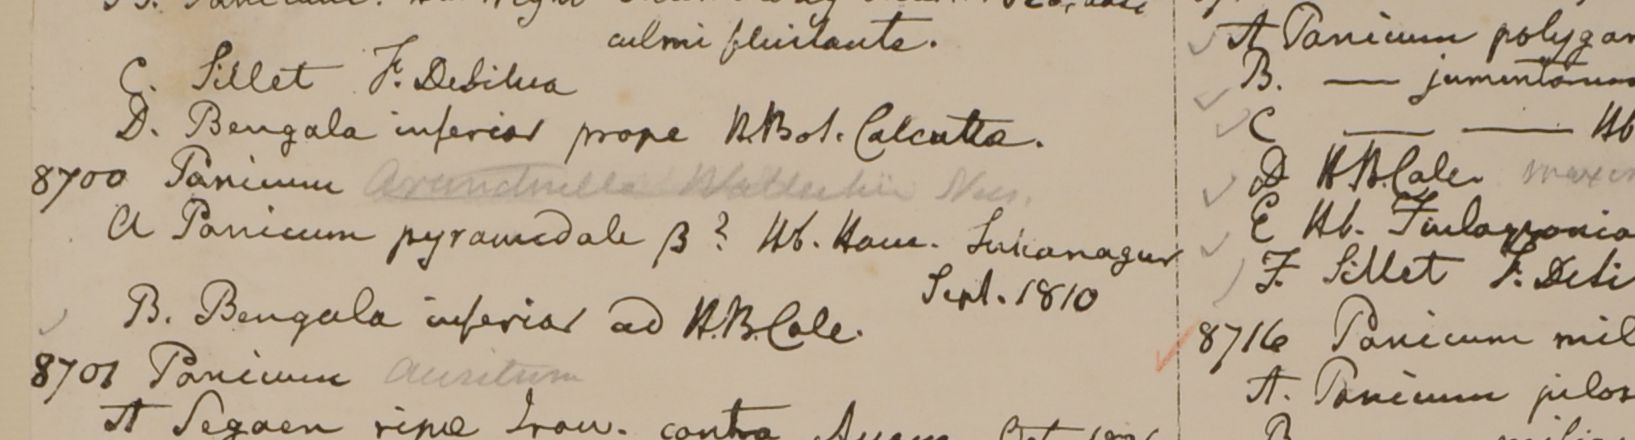 culmi fluitante.
C. Sillet F. Desilva
D. Bengala inferior prope H.Bot. Calcutta.
8700 Panicum Arundinella Wallichii Nees.
A Panicum pyramidale β? Hb. Ham.
Sept. 1810
B. Bengala inferior ad H.B.Calc.
8701 Panicum auritum
A Segaen ripae Iraw. contra
A Panicum polygon
B. — jumentorum
C — — Hb
D H.B.Calc.
E Hb. Finlaysonia
F. Sillet F. Desi
8716 Panicum mil
A. Panicum pilos
B